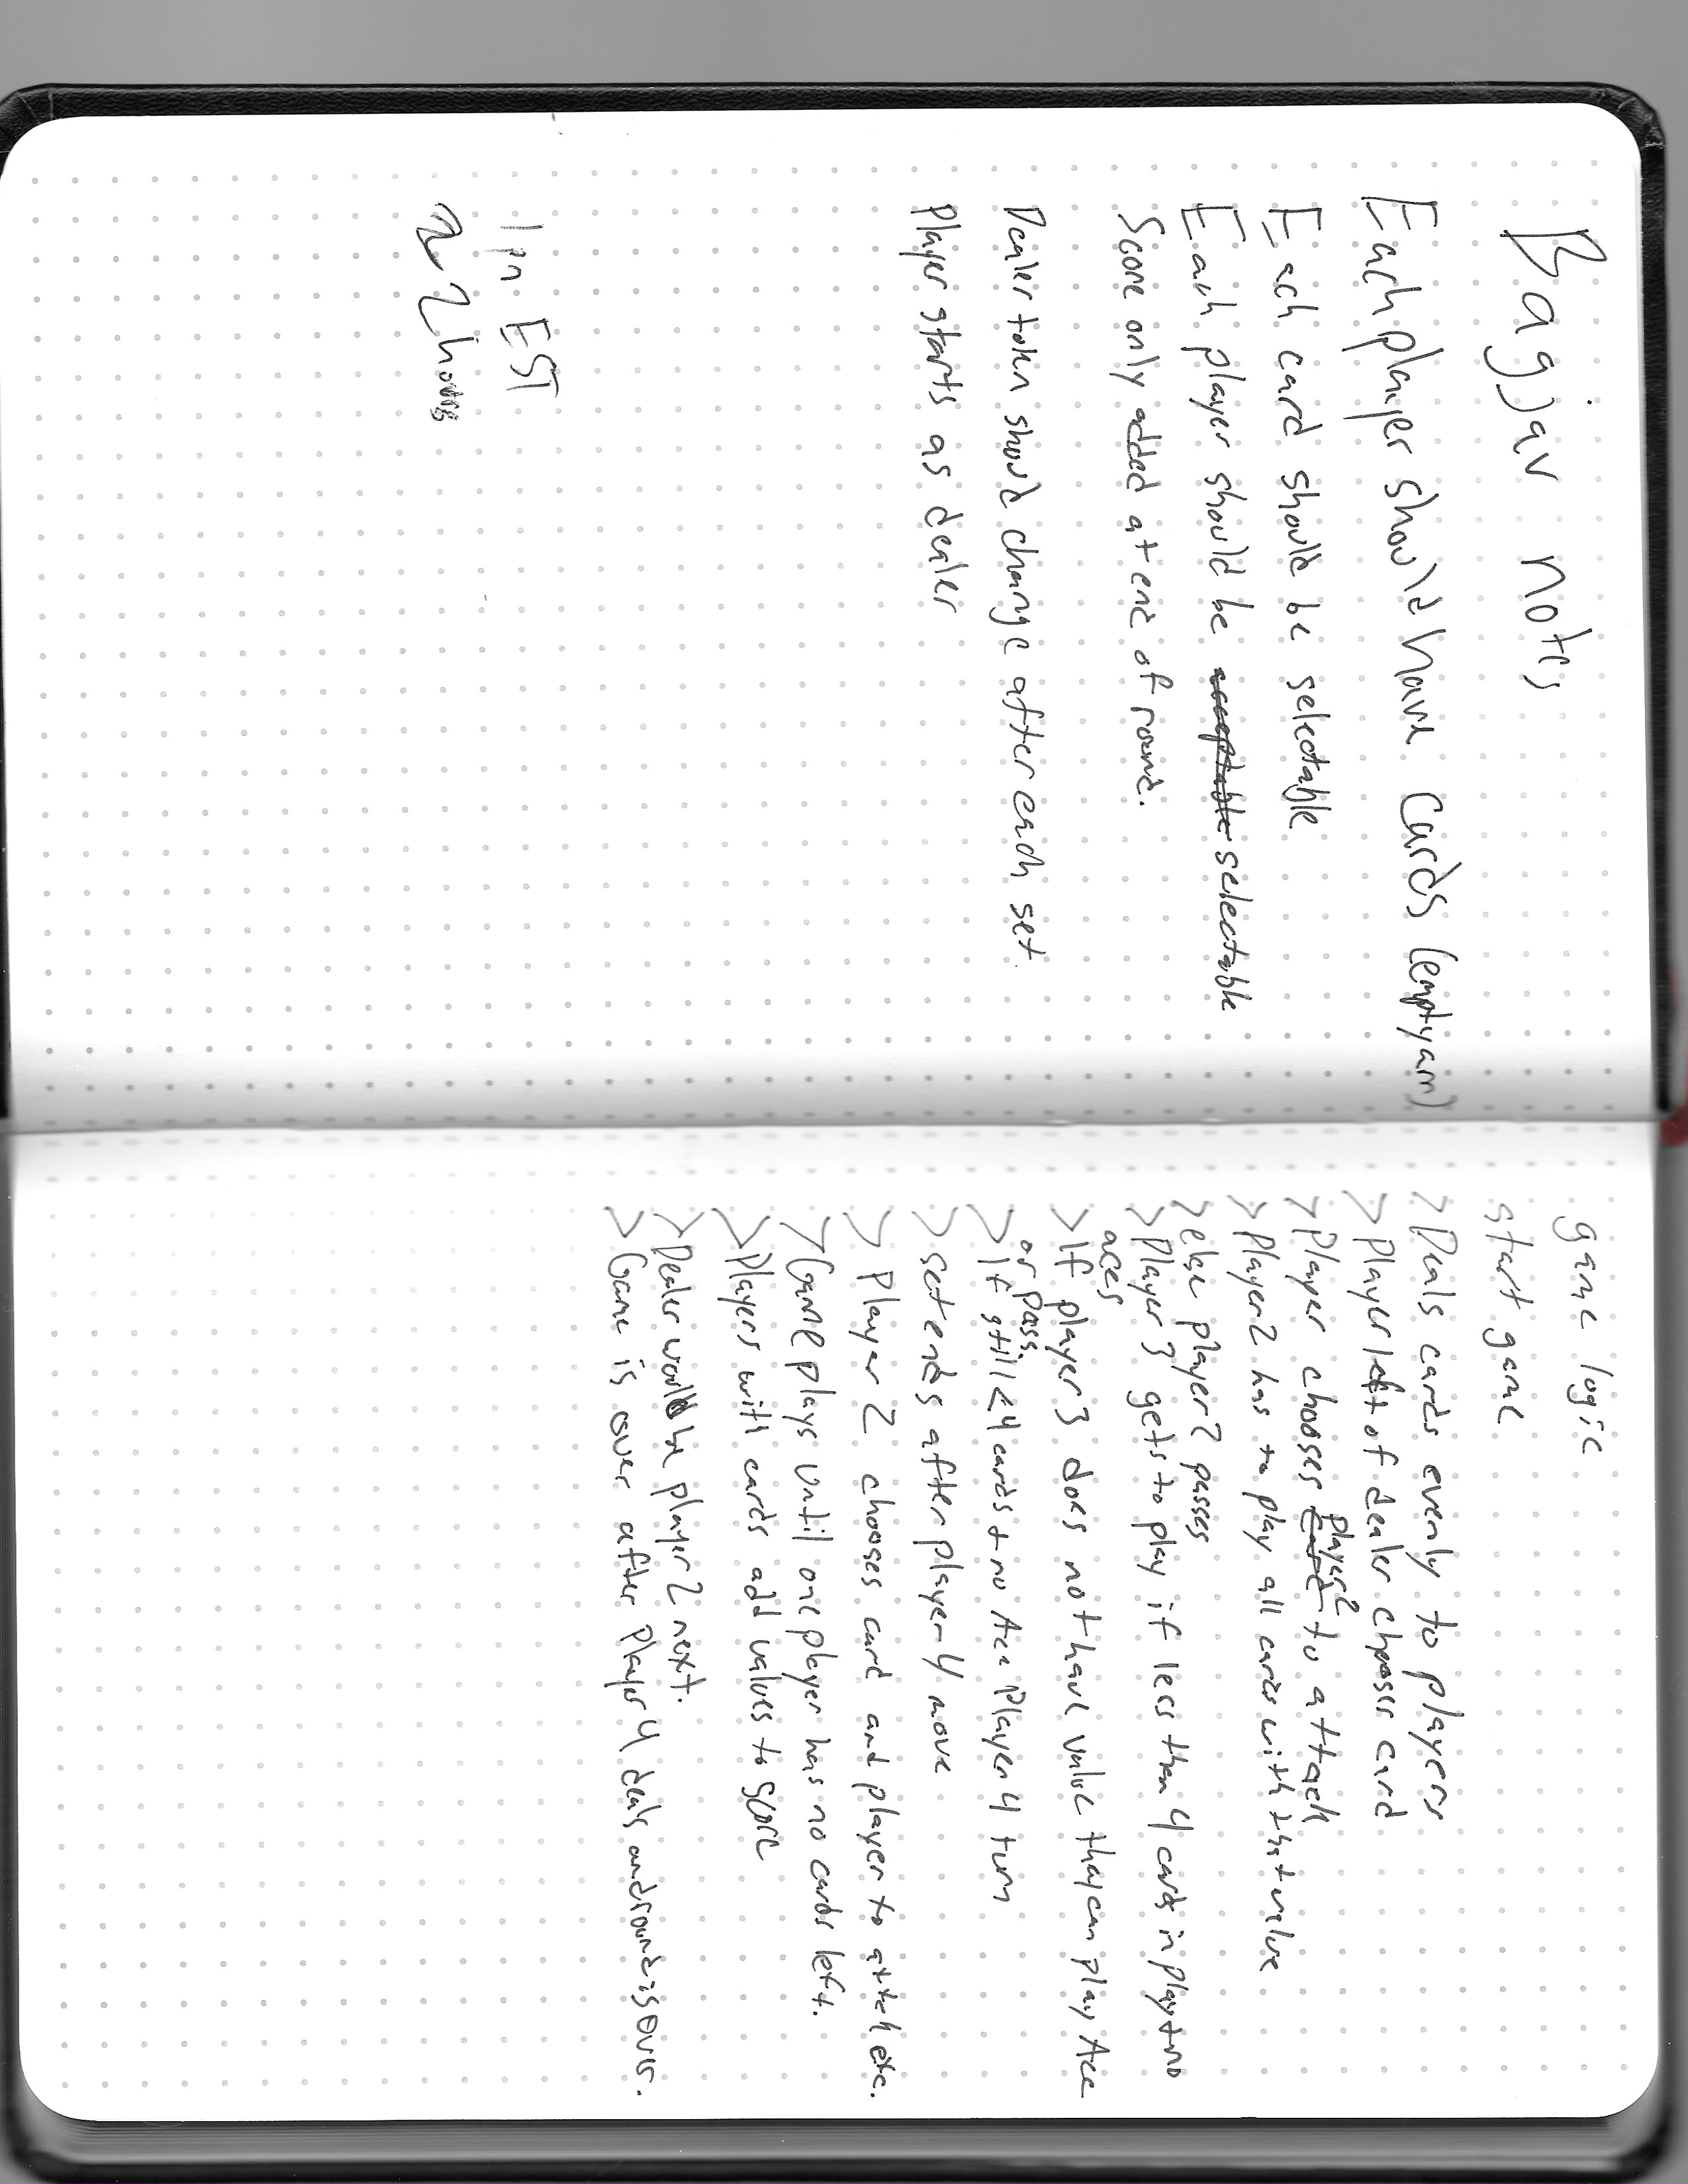 Bagjar notes
Each player should have cards (empty arr)
Each card should be selectable
Each player should be acceptable selectable
Score only added at end of round.
Dealer token should change after each set.
player starts as dealer
1pm EST
2 hours
game logic
start game
> Deals cards evenly to players
> Player left of dealer chooses card
> Player chooses card player 2 to attack
> Player 2 has to play all cards with that value
> else player 2 passes
> Player 3 gets to play if less than 4 cards in play + no
aces
> If player 3 does not have value they can play Ace
or pass.
> If still < 4 cards + no Ace Player 4 turn
> set ends after player 4 move
> Player 2 chooses card and player to attack etc.
> Game plays until one player has no cards left.
> Players with cards add values to score
> Dealer would be player 2 next.
> Game is over after player 4 deals and round is over.